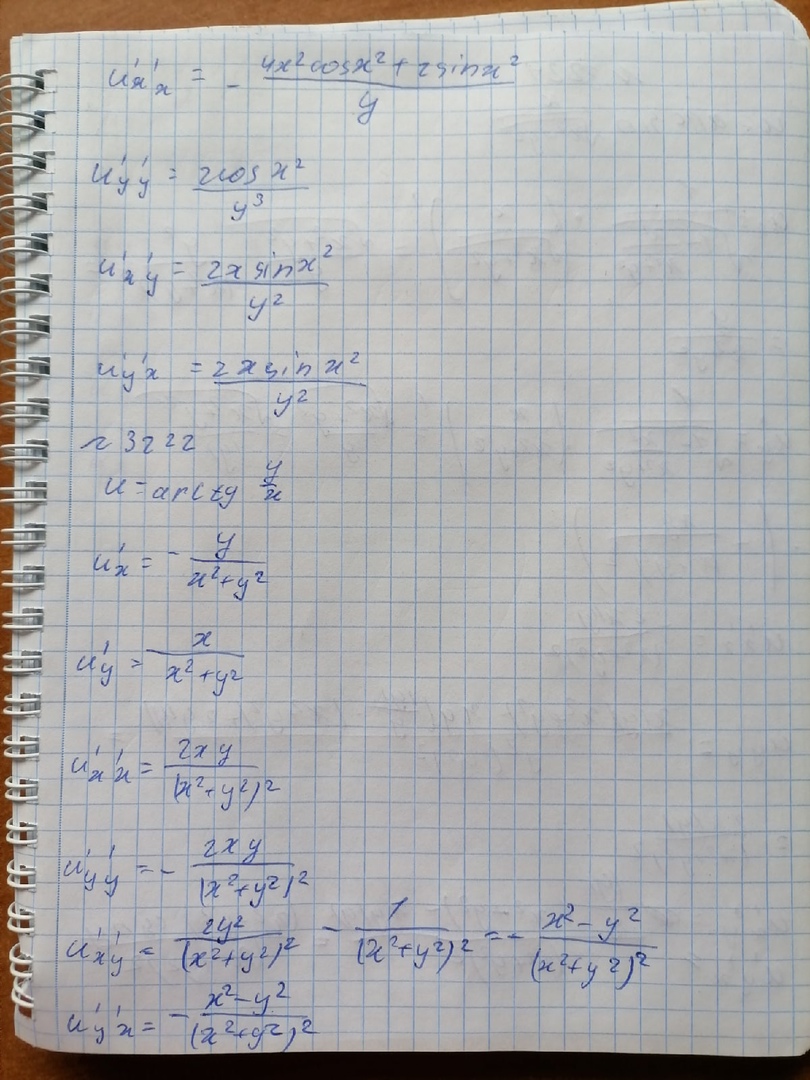 u'x'x = - (4x²cosx² + 2sinx²)/y
u'y'y = 2cosx²/y³
u'x'y = 2xsinx²/y²
u'y'x = 2xsinx²/y²
№ 3222
u = arctg y/x
u'x = - y/(x²+y²)
u'y = x/(x²+y²)
u'x'x = 2xy/(x²+y²)²
u'y'y = - 2xy/(x²+y²)²
u'x'y = 2y²/(x²+y²)² - 1/(x²+y²)² = - (x²-y²)/(x²+y²)²
u'y'x = - (x²-y²)/(x²+y²)²